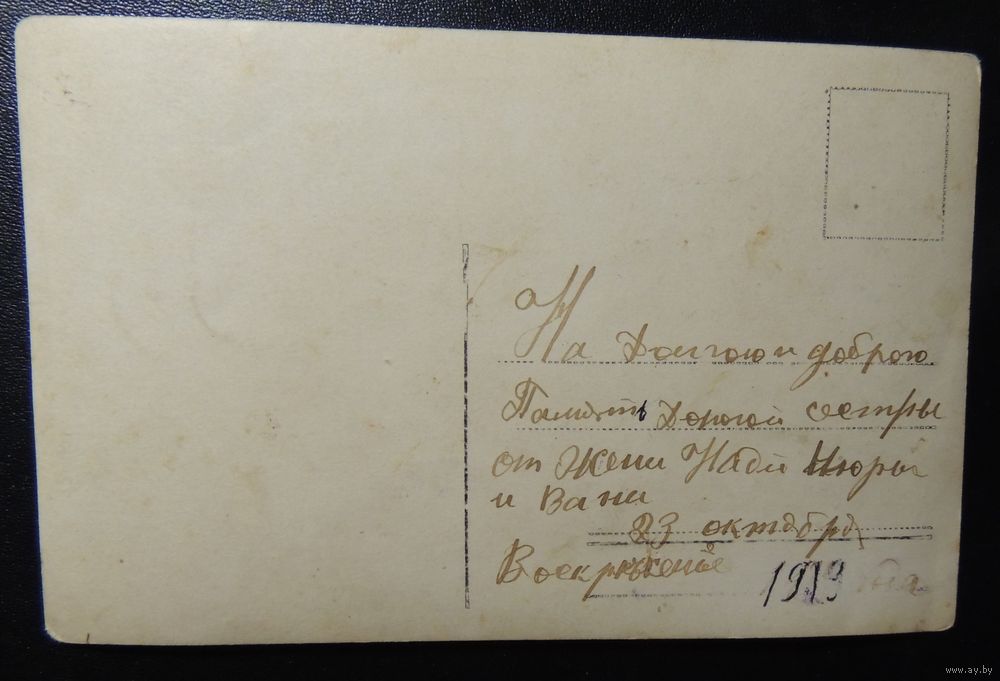 На Долгою и доброю
Память Дорогой сестры
от Жени Нади Нюры
и Вани
23 октября
Воскрысенье
1919 года
www.ay.by